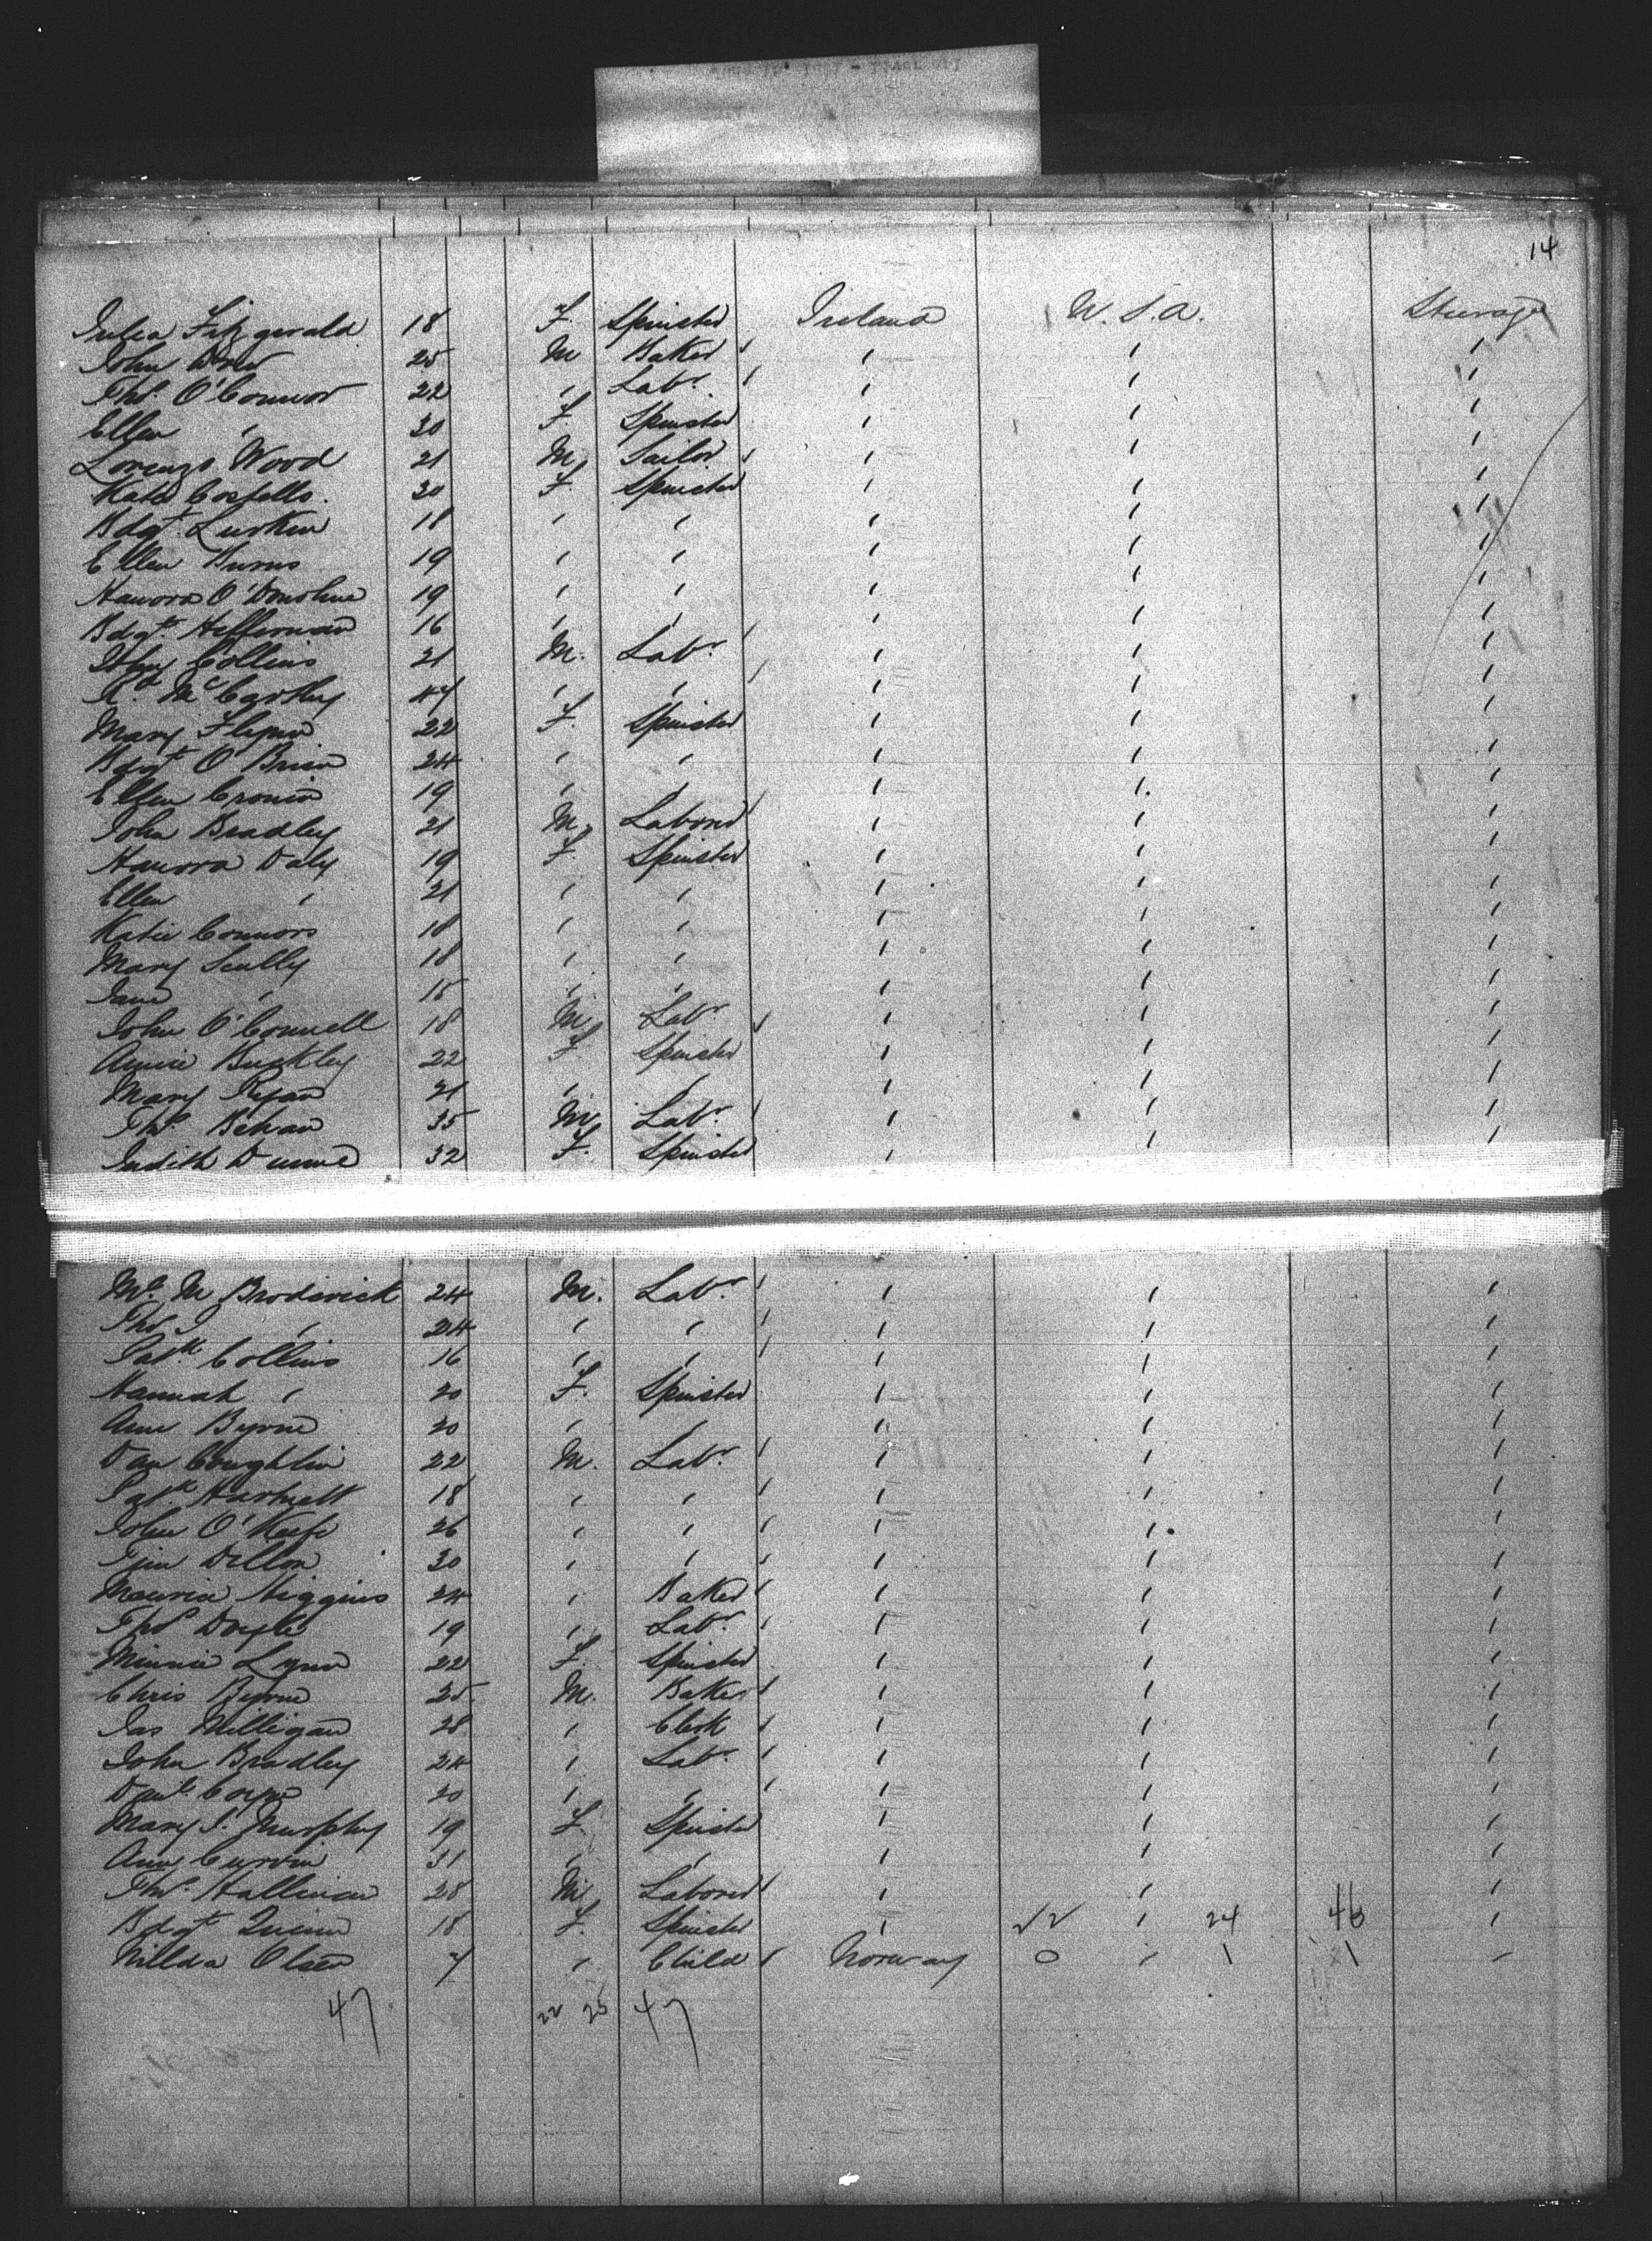 14
Julia Fitzgerald 18 F. Spinster Ireland U.S.A. Steerage
John Dow 25 M Baker " " "
Thos. O'Connor 22 " Labr. " " "
Ellen " 30 F. Spinster " " "
Lorenzo Wood 21 M. Sailor " " "
Kate Costello. 30 F. Spinster " " "
Bdgt. Lurkin 18 " " " " "
Ellen Burns 19 " " " " "
Hanora O'Donohue 19 " " " " "
Bdgt. Heffernan 16 " " " " "
John Collins 21 M. Labr. " " "
Rd. McCarthy 47 " " " " "
Mary Flynn 22 F. Spinster " " "
Bdgt O'Brien 24 " " " " "
Ellen Cronin 19 " " " " "
John Bradley 21 M. Laborer " " "
Hanora Daly 19 F. Spinster " " "
Ellen " 21 " " " " "
Katie Connors 18 " " " " "
Mary Scully 18 " " " " "
Jane " 15 " " " " "
John O'Connell 18 M. Labr. " " "
Annie Buckley 22 F Spinster " " "
Mary Ryan 21 " " " " "
Thos. Behan 35 M. Labr. " " "
Judith Dunne 32 F. Spinster " " "
M. Broderick 24 M. Labr. " " "
Thos J " 24 " " " " "
Patk. Collins 16 " " " " "
Hannah " 20 F. Spinster " " "
Ann Byrne 20 " " " " "
Dan Coughlin 22 M. Labr. " " "
Patk Hartnett 18 " " " " "
John O'Keefe 26 " " " " "
Tim Dillon 30 " " " " "
Maurice Higgins 24 " Baker " " "
Thos Doyle 19 " Labr. " " "
Minnie Lynn 22 F. Spinster " " "
Chris Byrne 25 M. Baker " " "
Jas Milligan 28 " Clerk " " "
John Bradley 24 " Labr. " " "
Danl. Coyne 20 " " " " "
Mary J. Murphy 19 F. Spinster " " "
Ann Curvin 31 " " " " "
Thos. Hallinan 28 M. Laborer " " "
Bdgt Quinn 18 F. Spinster " 22 " 24 46 "
Nillda Olsen 7 " Child Norway 0 " 1 1 "
47 22 25 47